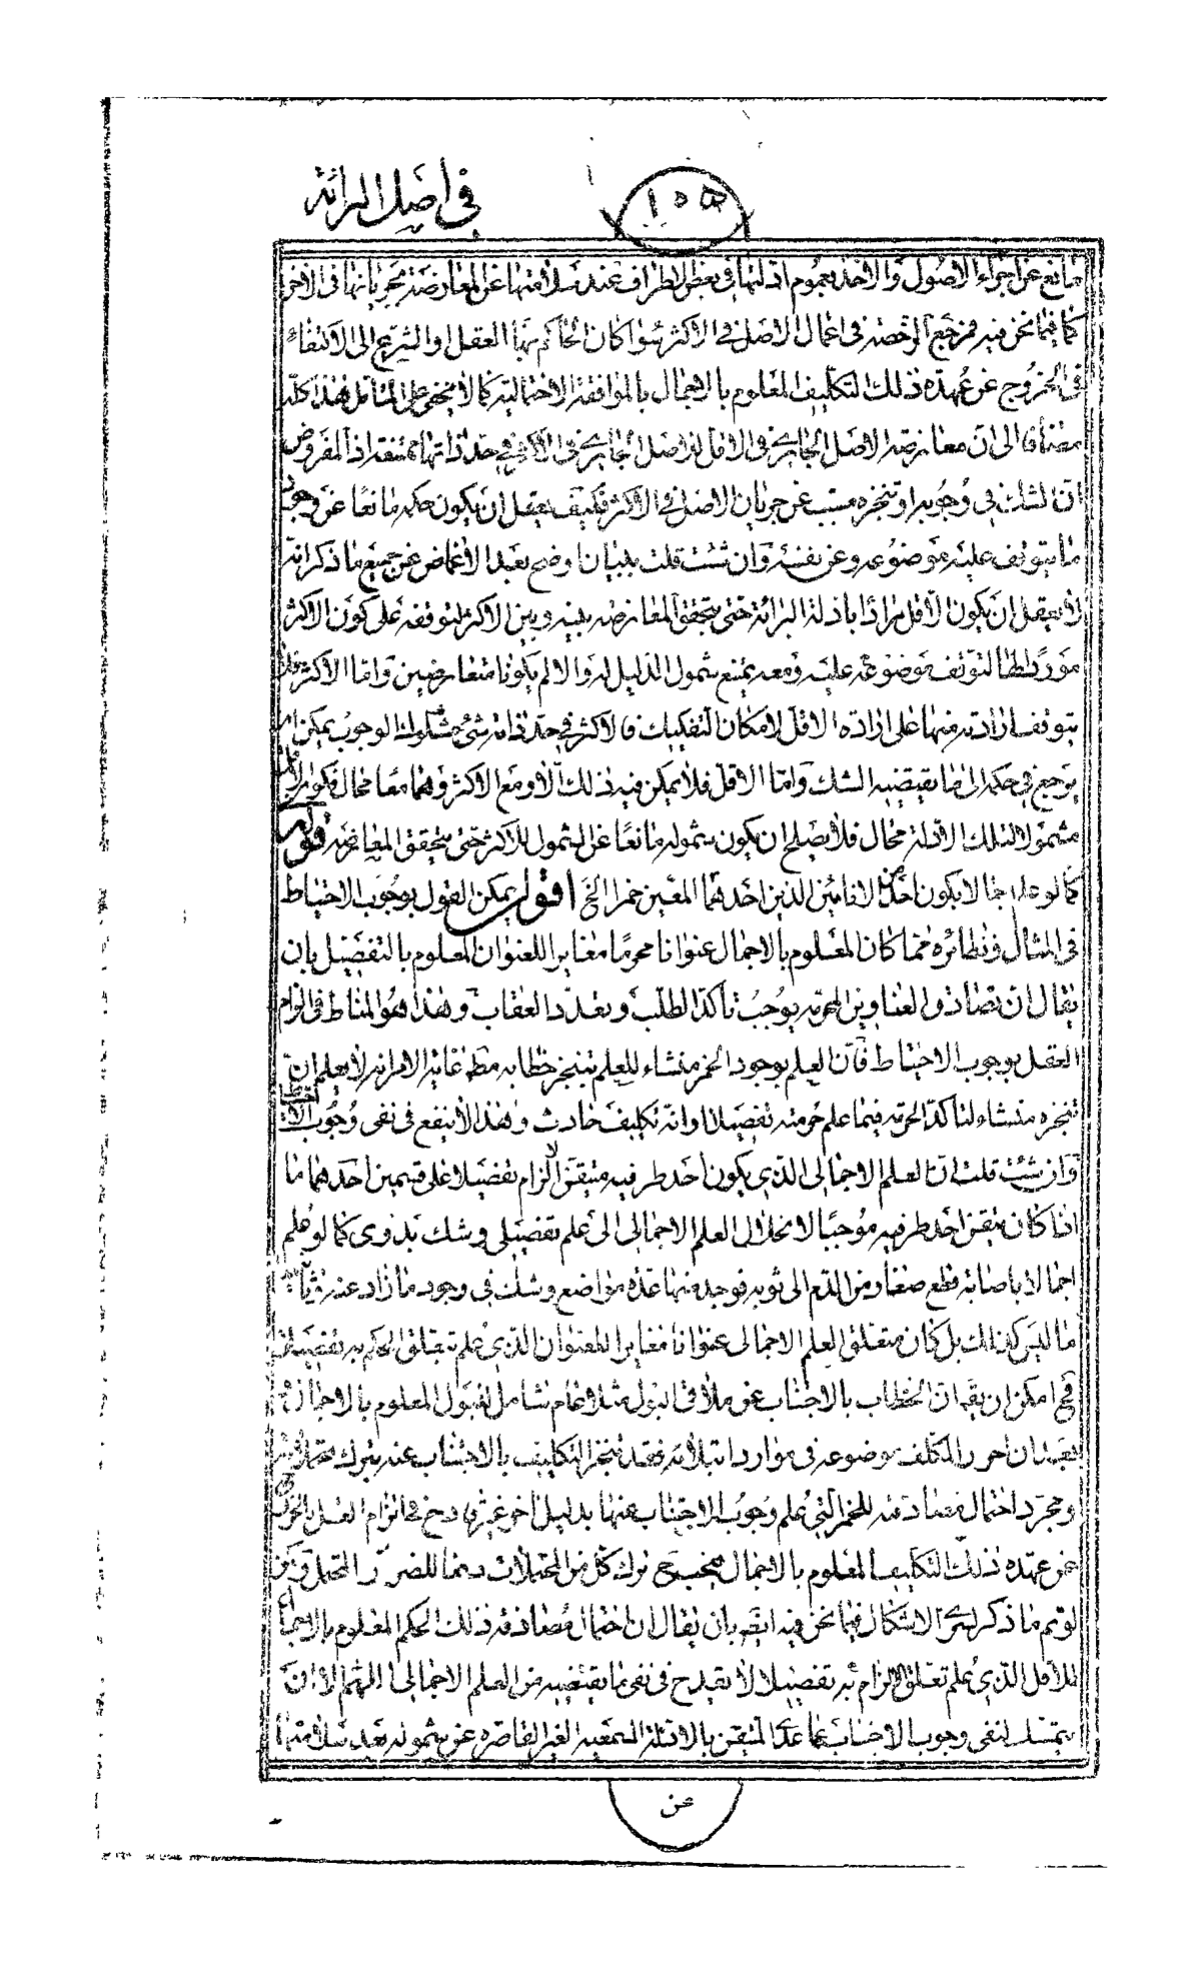 في اصل البرائة
١٠٥
مانع عن اجراء الاصول والاخذ بعموم ادلتها في بعض الاطراف عند سلامتها عن المعارضة بجريانها في الاخر
كما فيما نحن فيه فمرجع الرخصة في اعمال الاصل في الاكثر سواء كان الحاكم بها العقل او الشرع الى الاكتفاء
في الخروج عن عهدة ذلك التكليف المعلوم بالاجمال بالموافقة الاحتمالية كما لا يخفى على المتامل هذا كله
مضافا الى ان معارضة الاصل الجاري في الاقل للاصل الجاري في الاكثر في حد ذاتها ممتنعة اذ المفروض
ان الشك في وجوبه او تنجزه مسبب عن جريان الاصل في الاكثر فكيف يعقل ان يكون حكمه مانعا عن وجود
ما يتوقف عليه موضوعه وعن نفسه وان شئت قلت ببيان اوضح بعد الاغماض عن جميع ما ذكر انه
لا يعقل ان يكون الاقل مرادا بادلة البرائة حتى يتحقق المعارضة بينه وبين الاكثر لتوقفه على كون الاكثر
موردا لها لتوقف موضوعه عليه ومعه يمتنع شمول الدليل له والا لم يكونا متعارضين واما الاكثر فلا
يتوقف ارادته منها على ارادة الاقل لامكان التفكيك فالاكثر في حد ذاته شيء مشكوك الوجوب يمكن ان
يرجع في حكمه الى ما يقتضيه الشك واما الاقل فلا يمكن فيه ذلك الا ومع الاكثر وهما معا محال فكون الاقل
مشمولا لتلك الادلة محال فلا يصلح ان يكون شموله مانعا عن الشمول للاكثر حتى يتحقق المعارضة قوله
كما لو علم اجمالا بكون احد من الانائين الذين احدهما المعين خمر الخ اقول يمكن القول بوجوب الاحتياط
في المثال ونظائره مما كان المعلوم بالاجمال عنوانا محرما مغايرا للعنوان المعلوم بالتفصيل بان
يقال ان تصادق العناوين المحرمة يوجب تاكد الطلب وتعدد العقاب وهذا هو المناط في الزام
العقل بوجوب الاحتياط فان العلم بوجود الخمر منشاء للعلم بتنجز خطابه مطلقا غاية الامر انه لا يعلم ان
تنجزه منشاء لتاكد الحرمة فيما علم حرمته تفصيلا او انه تكليف حادث وهذا لا ينفع في نفي وجوب الاحتياط
وان شئت قلت ان العلم الاجمالي الذي يكون احد طرفيه متيقن الالزام تفصيلا على قسمين احدهما ما
اذا كان تيقن احد طرفيه موجبا لانحلال العلم الاجمالي الى علم تفصيلي وشك بدوي كما لو علم
اجمالا باصابة قطع صغار من الدم الى ثوبه فوجد منها عدة مواضع وشك في وجود ما زاد عنه وثانيهما
ما ليس كذلك بل كان متعلق العلم الاجمالي عنوانا مغايرا للعنوان الذي علم تعلق الحكم به تفصيلا
فح امكن ان يقال ان الخطاب بالاجتناب عن ملاقي البول مثلا عام شامل للبول المعلوم بالاجمال
فبعد ان احرز المكلف موضوعه في موارد ابتلائه فقد تنجز التكليف بالاجتناب عنه بترك محتملاته
ومجرد احتمال مصادفته للخمر التي علم وجوب الاجتناب عنها بدليل اخر غير قادح في الزام العقل بالخروج
عن عهدة ذلك التكليف المعلوم بالاجمال فيجب ح ترك كل من المحتملات دفعا للضرر المحتمل ولكن
لو تم ما ذكر لسرى الاشكال فيما نحن فيه ايضا بان يقال ان احتمال مصادفة ذلك الحكم المعلوم بالاجمال
للاقل الذي علم تعلق الالزام به تفصيلا لا يقدح في نفي ما يقتضيه من العلم الاجمالي اللهم الا ان
يتمسك لنفي وجوب الاجتناب عما عدا المتيقن بالادلة السمعية الغير القاصرة عن شموله بعد سلامتها
عن